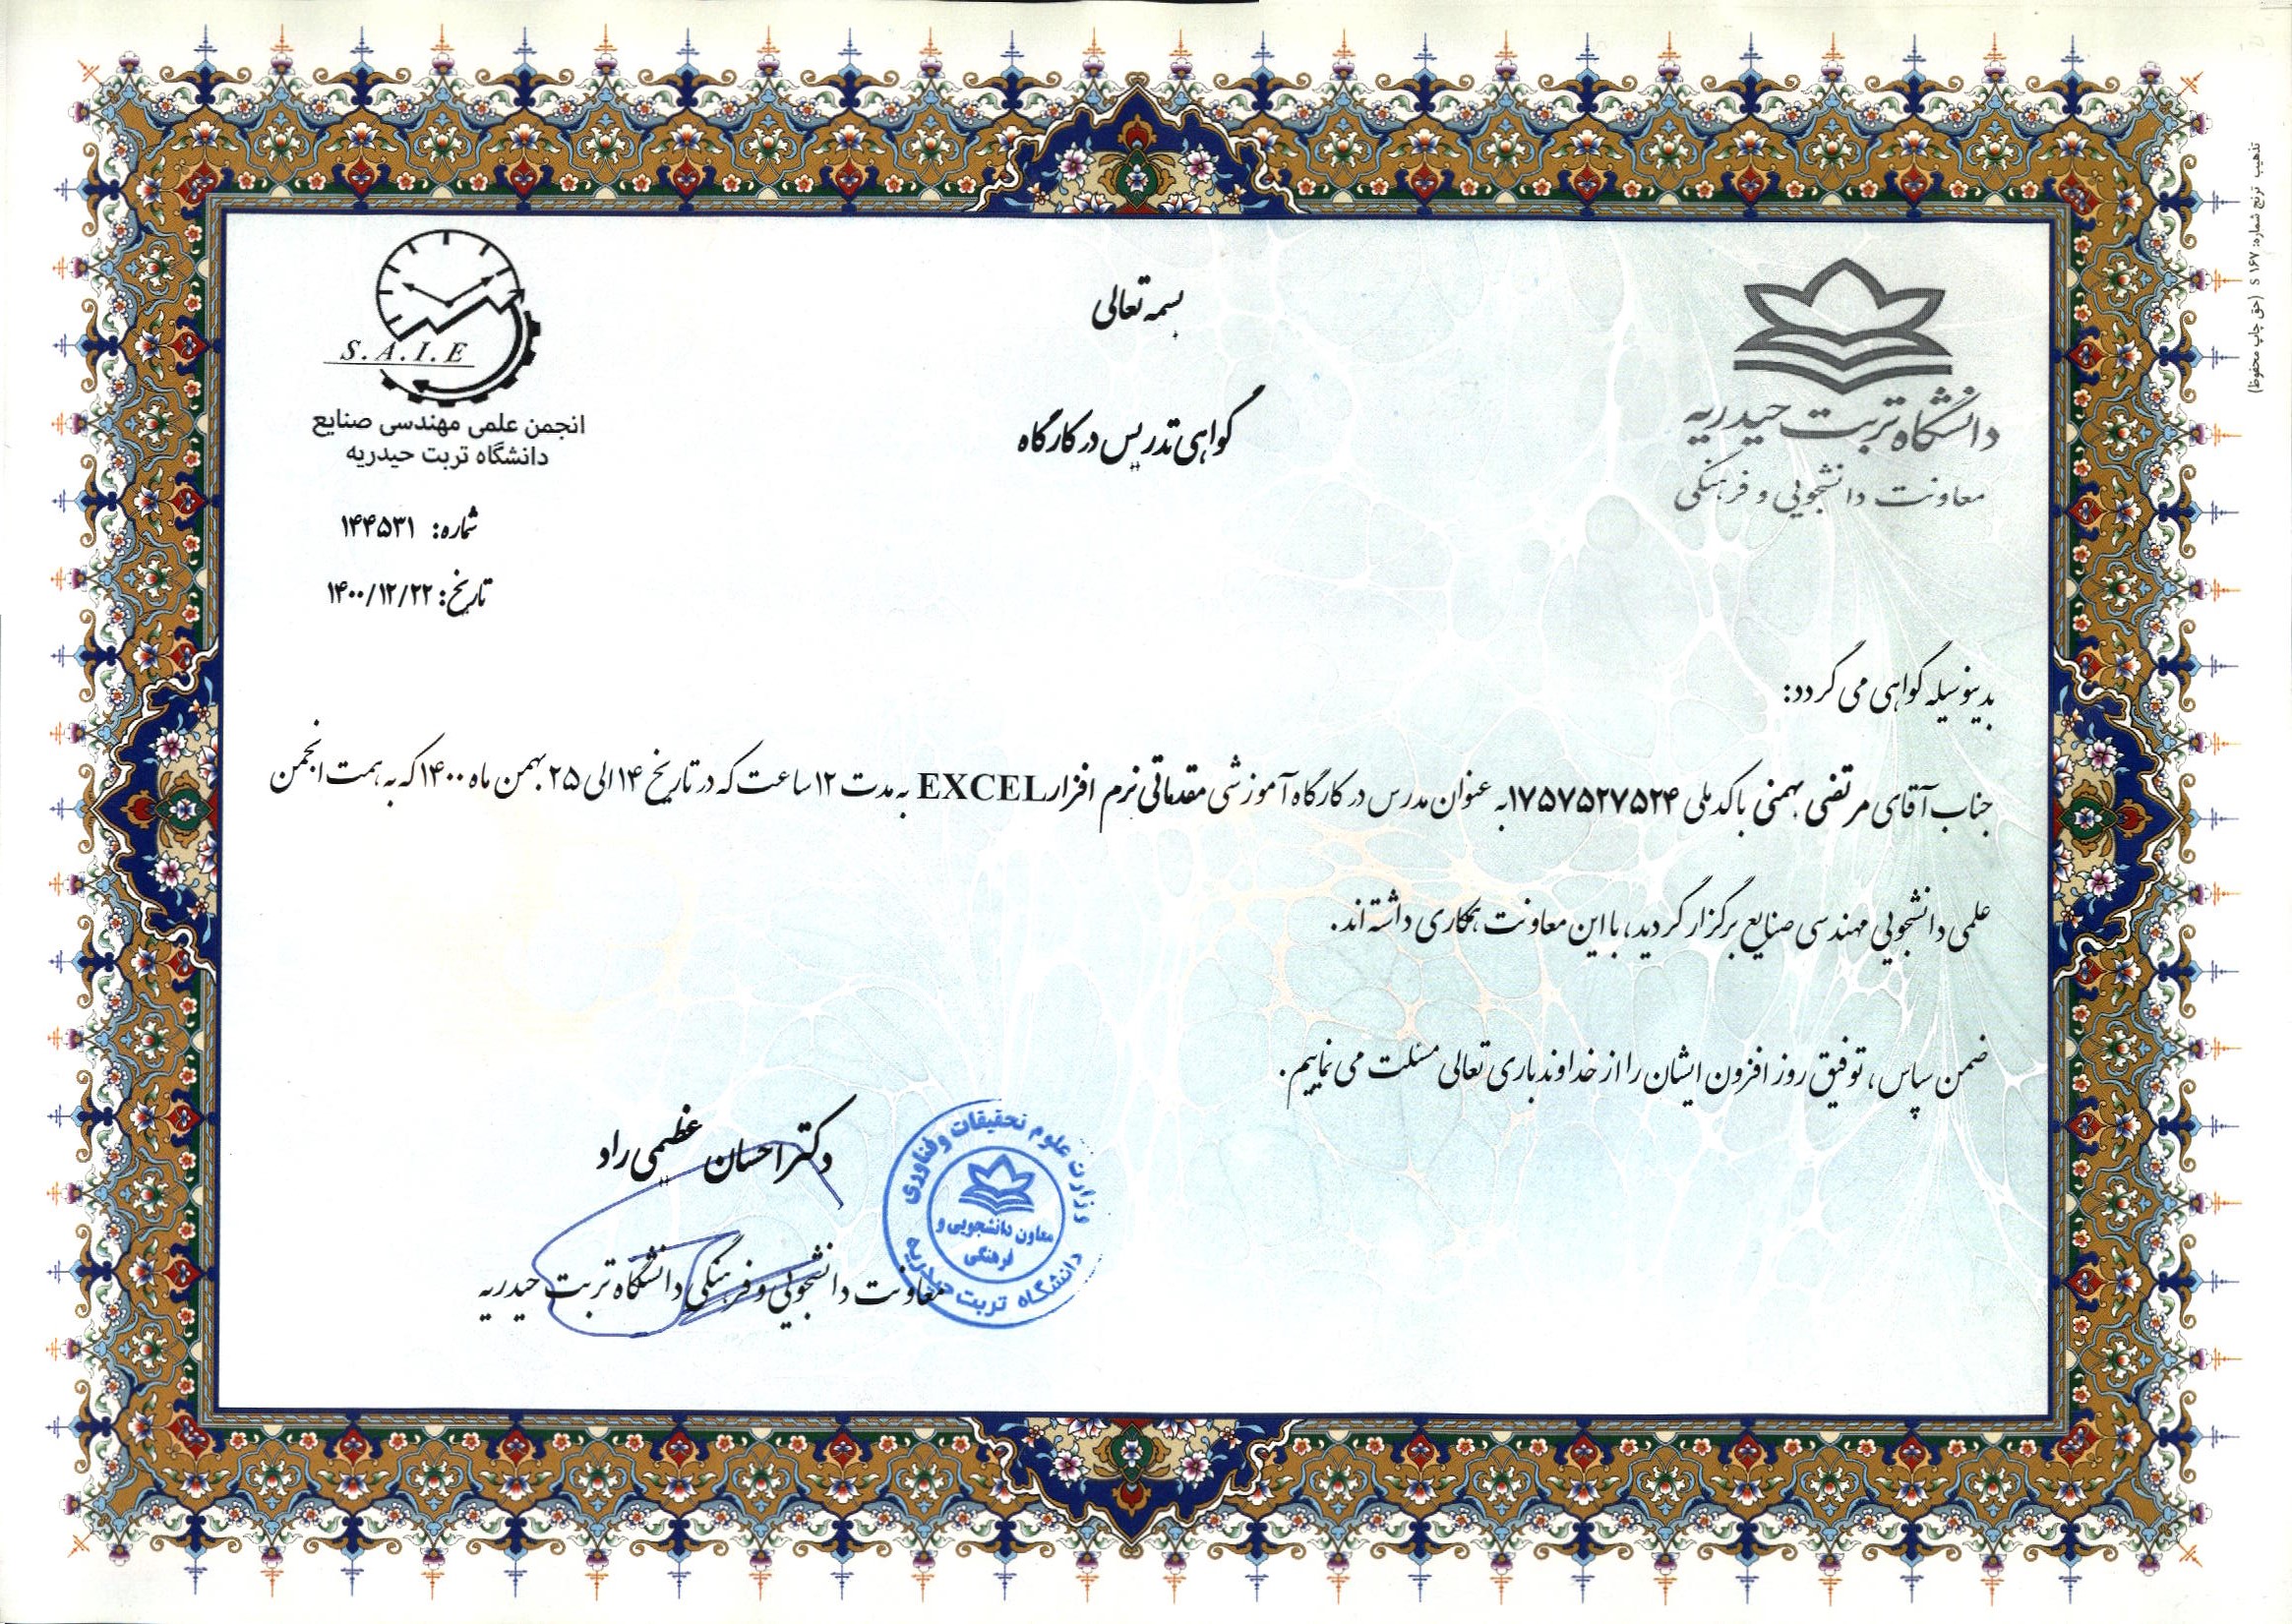 بسمه تعالی
گواهی تدریس در کارگاه
دانشگاه تربت حیدریه
معاونت دانشجویی و فرهنگی
S.A.I.E
انجمن علمی مهندسی صنایع
دانشگاه تربت حیدریه
شماره: ۱۴۴۵۳۱
تاریخ: ۱۴۰۰/۱۲/۲۲
بدینوسیله گواهی می گردد:
جناب آقای مرتضی بهمنی با کد ملی ۱۷۵۷۵۲۷۵۲۴ به عنوان مدرس در کارگاه آموزشی مقدماتی نرم افزار EXCEL به مدت ۱۲ ساعت که در تاریخ ۱۴ الی ۲۵ بهمن ماه ۱۴۰۰ که به همت انجمن
علمی دانشجویی مهندسی صنایع برگزار گردید، با این معاونت همکاری داشته اند.
ضمن سپاس، توفیق روز افزون ایشان را از خداوند باری تعالی مسئلت می نماییم.
دکتر احسان عظیمی راد
معاونت دانشجویی و فرهنگی دانشگاه تربت حیدریه
وزارت علوم تحقیقات و فناوری
معاون دانشجویی و
فرهنگی
دانشگاه تربت حیدریه
تذهیب ترنج شماره: S ۱۶۷ (حق چاپ محفوظ)